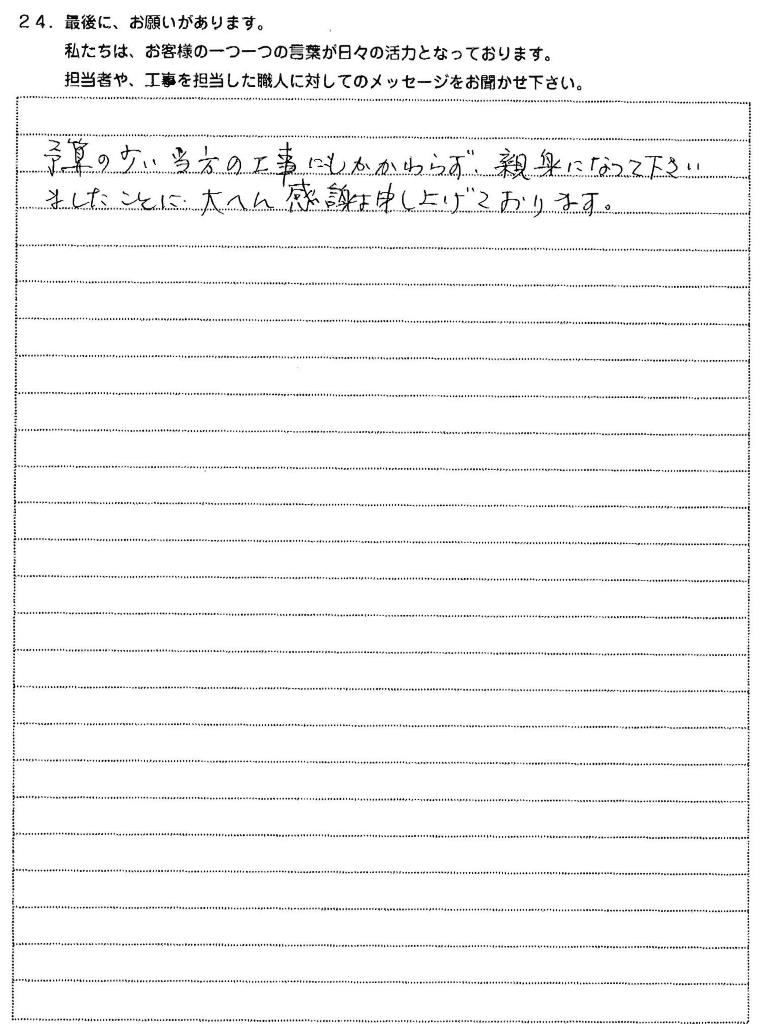 24．最後に、お願いがあります。
私たちは、お客様の一つ一つの言葉が日々の活力となっております。
担当者や、工事を担当した職人に対してのメッセージをお聞かせ下さい。
予算の少い当方の工事にもかかわらず、親身になって下さい
ましたことに、大へん感謝申し上げております。